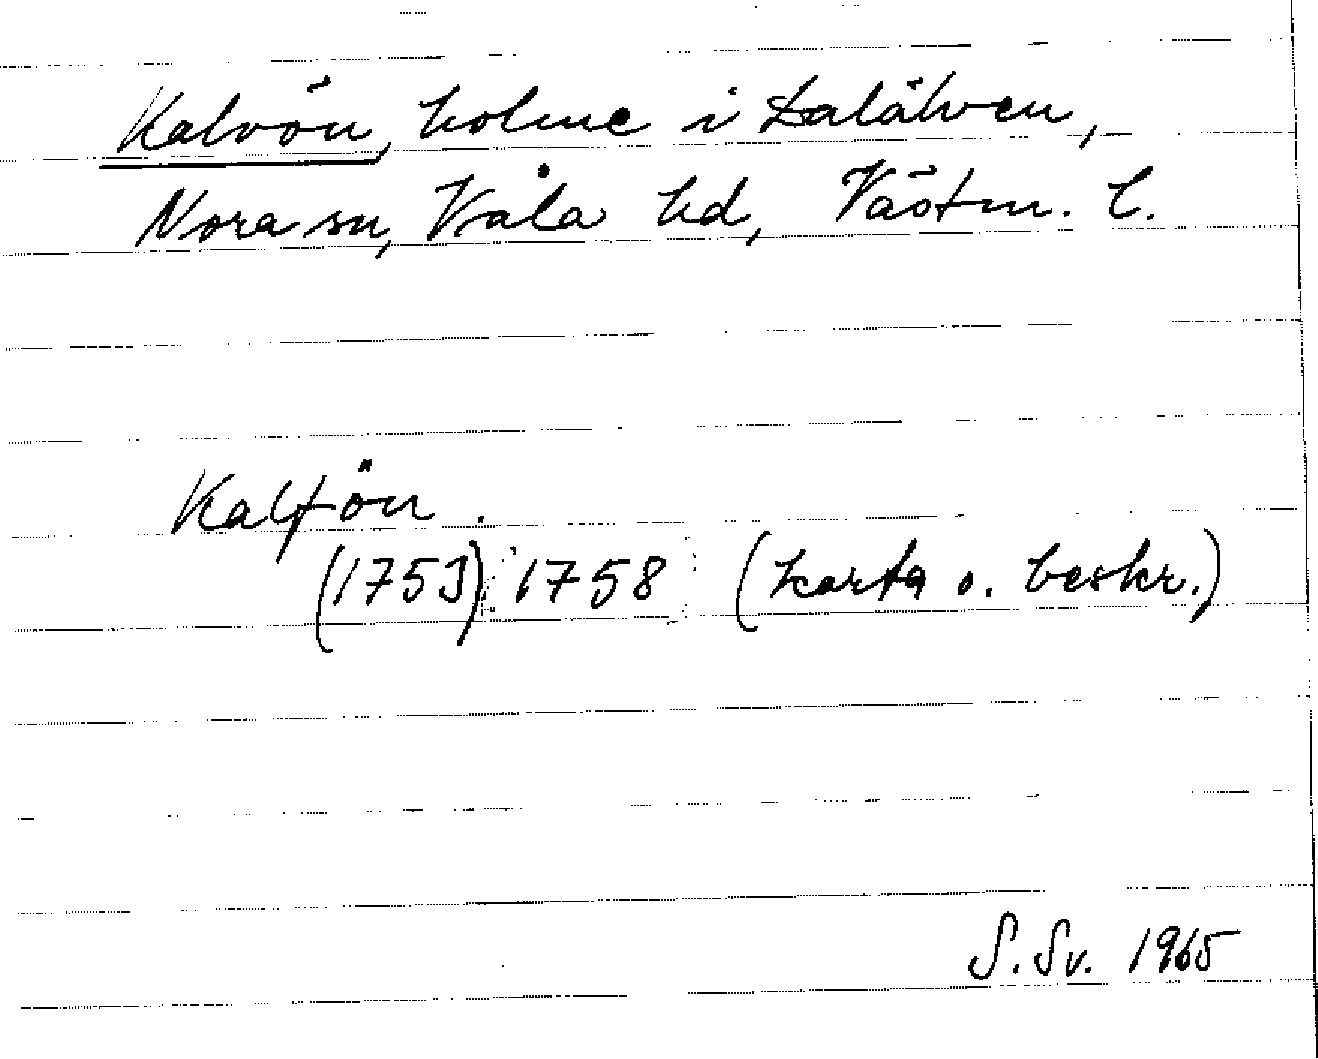 Kalvön, holme i Dalälven,
Nora sn, Våla hd, Västm. l.
Kalfön.
(1753) 1758 (karta o. beskr.)
S. Sv. 1965